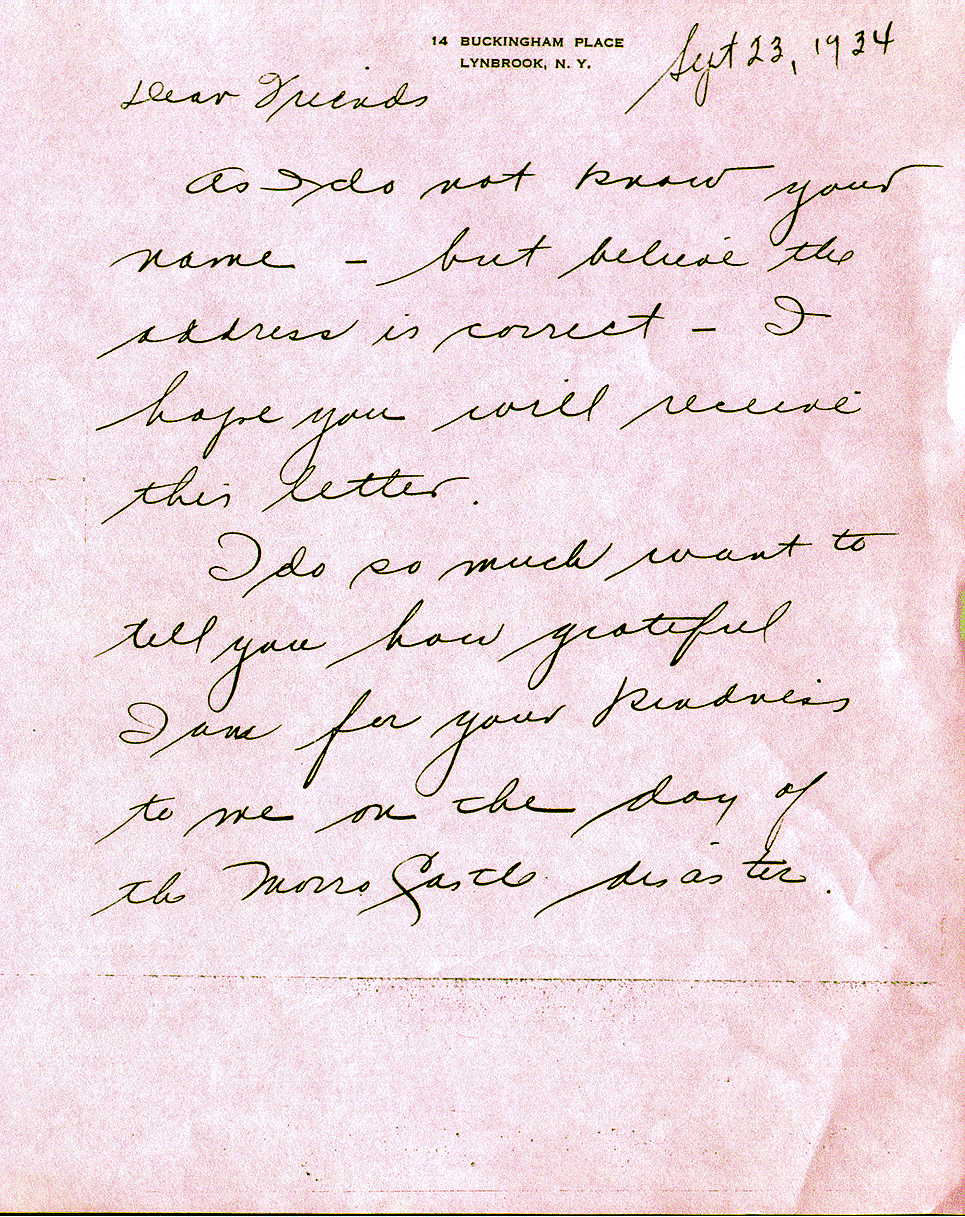 14 BUCKINGHAM PLACE
LYNBROOK, N. Y.
Sept 23, 1934
Dear Friends
As I do not know your
name - but believe the
address is correct - I
hope you will receive
this letter.
I do so much want to
tell you how grateful
I am for your kindness
to me on the day of
the Morro Castle disaster.